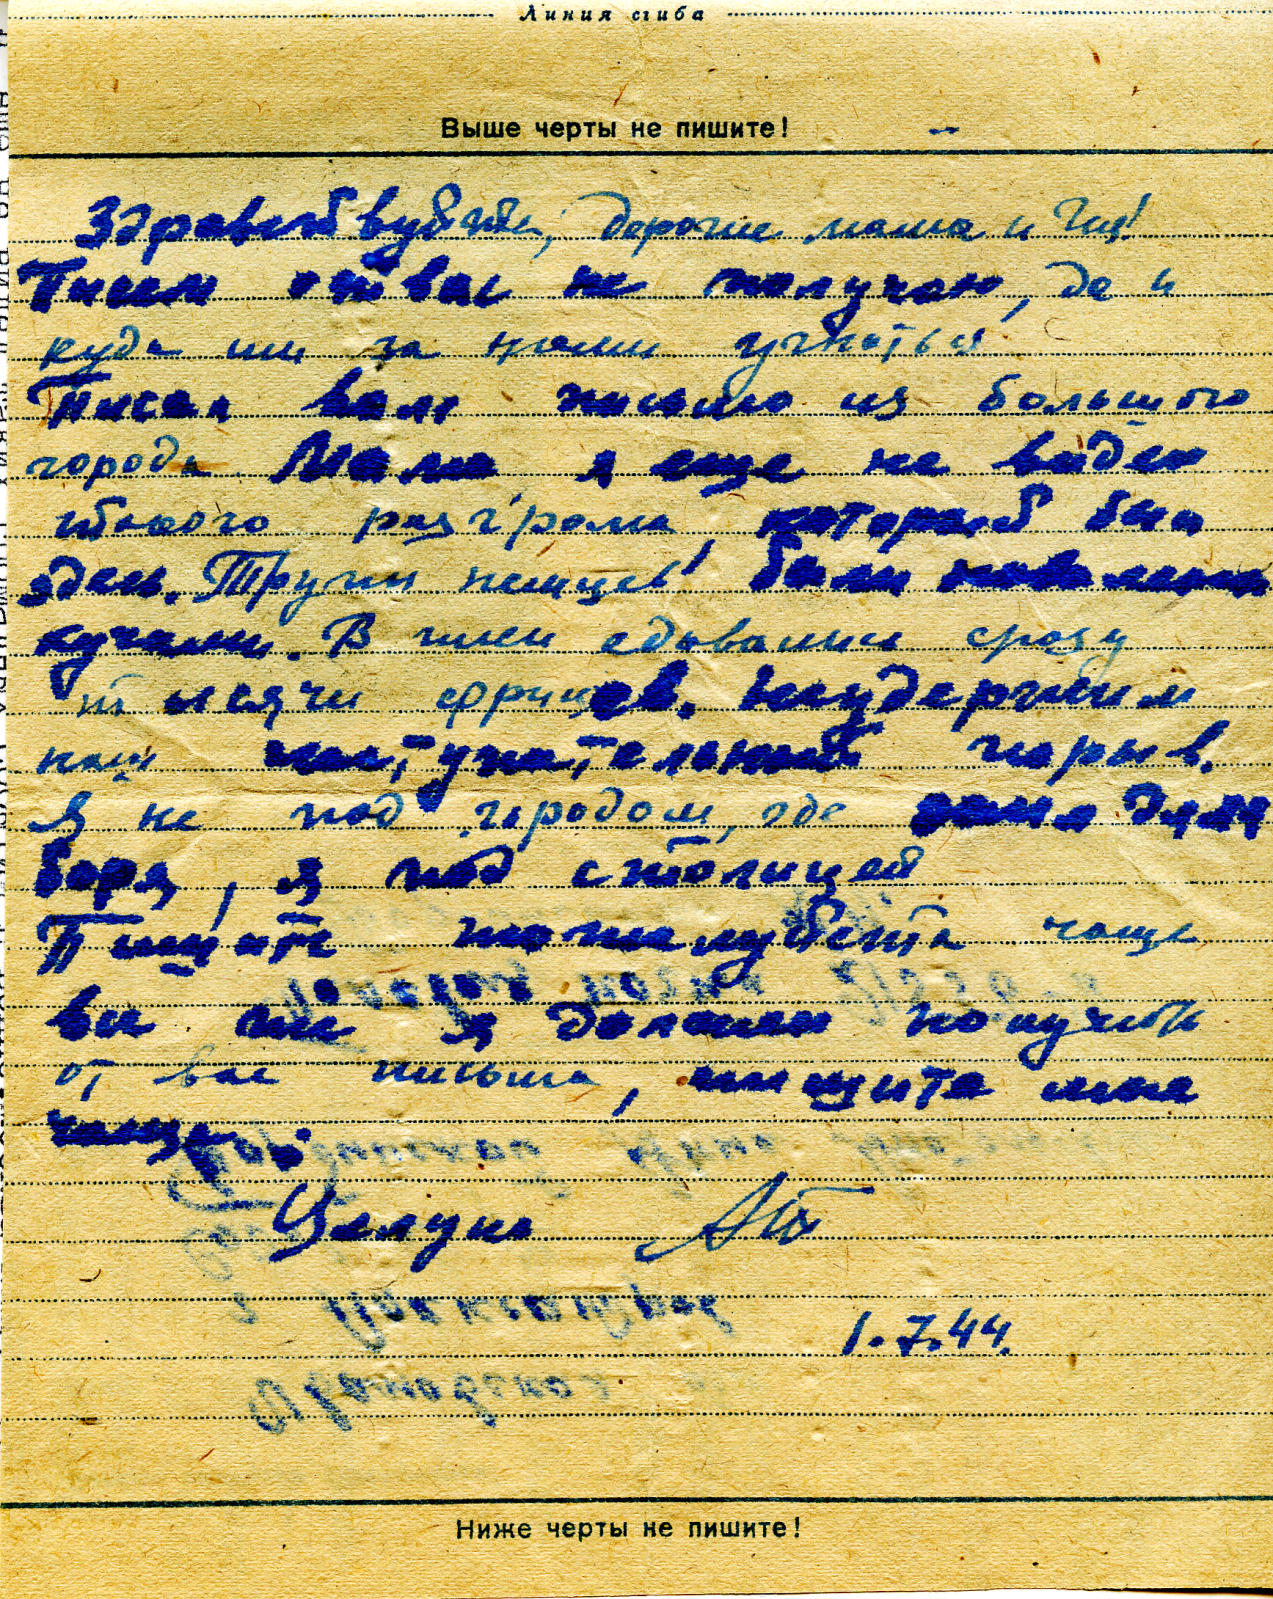 Линия сгиба
Выше черты не пишите!
Здравствуйте, дорогие мама и
Писем от вас не получаю, да и
куда им за нами угнаться
Писал вам письмо из большого
города. Мама я еще не видел
такого разгрома, который был
здесь. Трупы немцев были навалены
кучами. В плен сдавались сразу
тысячи фрицев. Неудержим
наш наступательный порыв.
Я не под городом, где дядя
Боря, я под столицей
Пишите пожалуйста чаще
вы и я должен получить
от вас письма, пишите мне
чаще.
Целую
1.7.44.
Ниже черты не пишите!